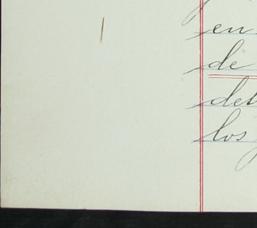 en
de
det
los